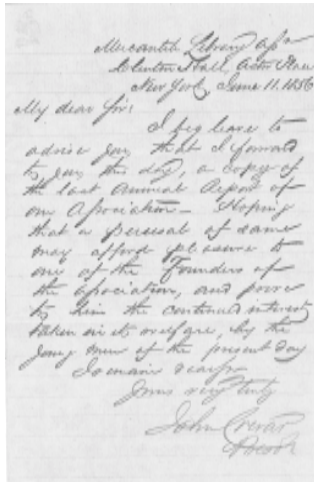 Mercantile Library Assn
Clinton Hall, Astor Place
New York, June 11. 1856
My dear Sir:
I beg leave to
advise you that I forward
to you this day, a copy of
the last Annual Report of
our Association - Hoping
that a perusal of same
may afford pleasure to
one of the Founders of
the association, and prove
to him the continued interest
taken in its welfare, by the
young men of the present day
I remain dear Sir
Yours very truly
John Crerar